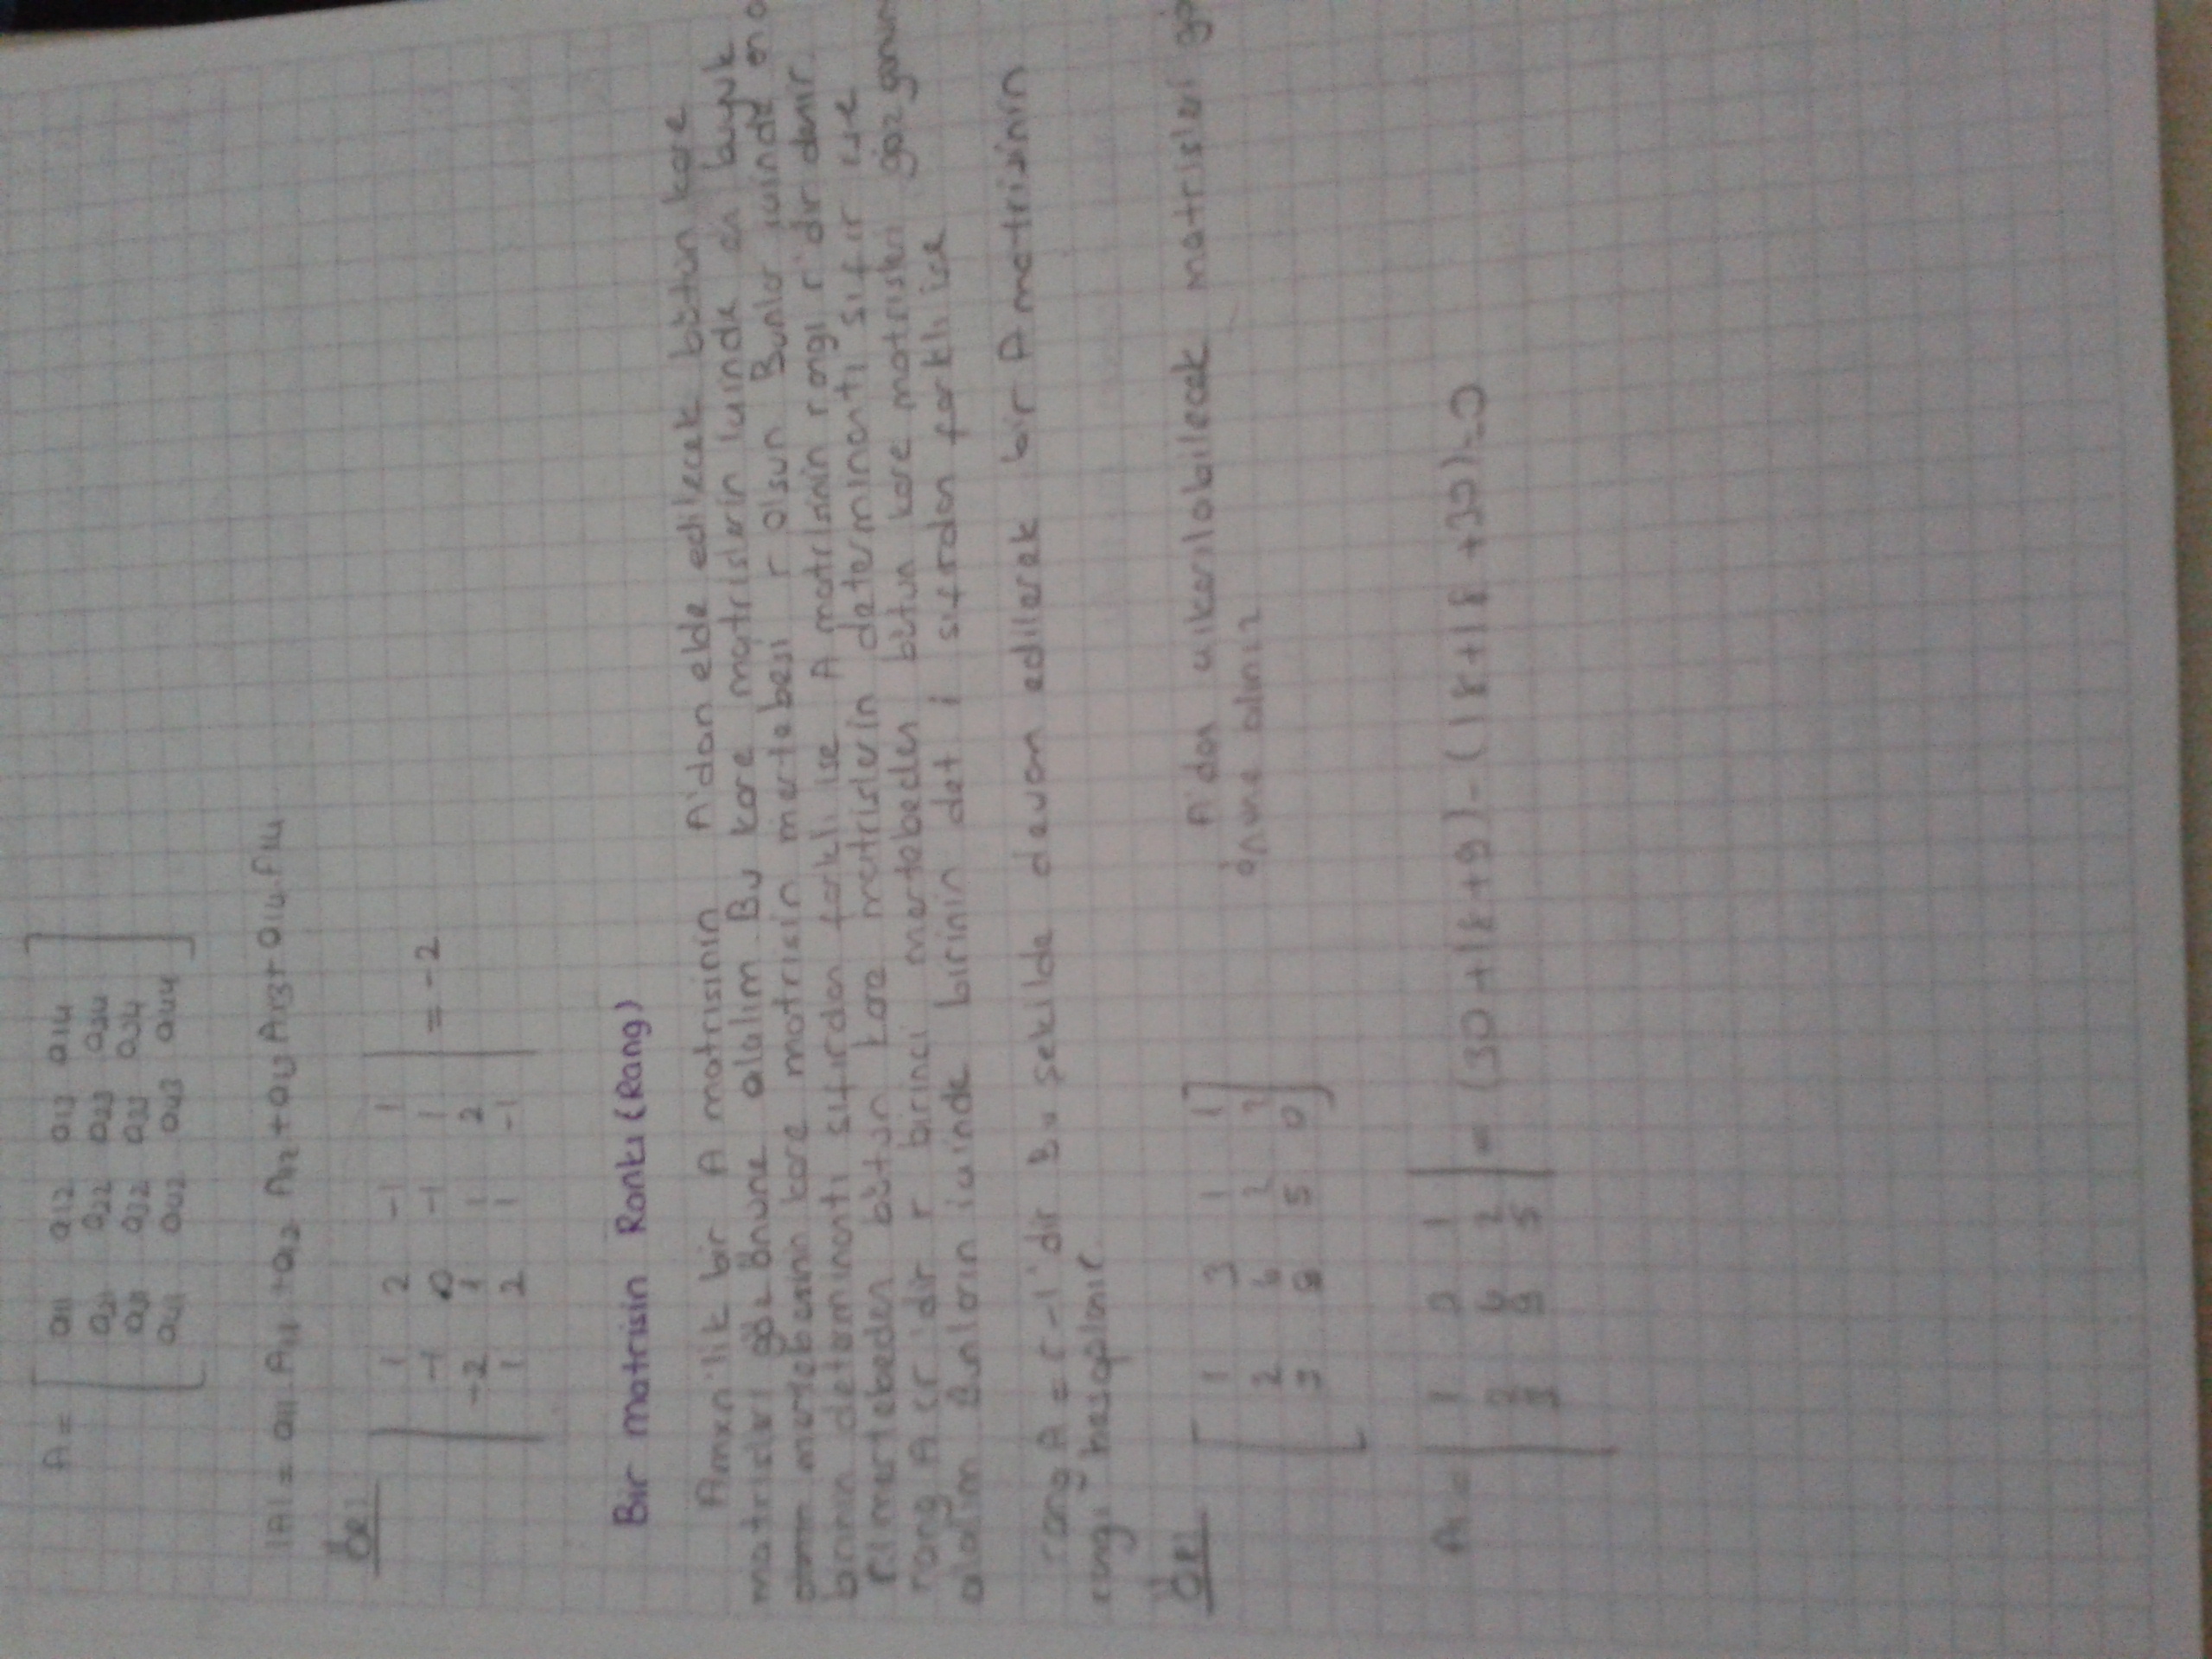 A =
a11 a12 a13 a14
a21 a22 a23 a24
a31 a32 a33 a34
a41 a42 a43 a44
|A| = a11 A11 + a12 A12 + a13 A13 + a14 A14
Ör/
1 2 -1 1
-1 0 -1 1 = -2
-2 1 1 2
1 2 1 -1
Bir matrisin Rankı (Rang)
Amxn'lik bir A matrisinin A'dan elde edilecek bütün kare
matrisleri göz önüne alalım Bu kare matrislerin içinde en büyük
mertebesinin kare matrisin mertebesi r olsun Bunlar içinde en a
birinin determinantı sıfırdan farklı ise A matrisinin rangı r'dir denir.
r. mertebeden bütün kare matrislerin determinantı sıfır ise
rang A < r'dir r birinci mertebeden bütün kare matrisleri göz önün
alalım Bunların içinde birinin det ı sıfırdan farklı ise
rang A = r-1'dir Bu şekilde devam edilerek bir A matrisinin
rangı hesaplanır.
Ör/
1 3 1 1
2 6 2 2
9 5 0
A'dan çıkarılabilecek matrisleri gö
önüne alınız
A1 = 1 3 1
2 6 2
9 5 = (30+18+9)-(18+18+30)=0